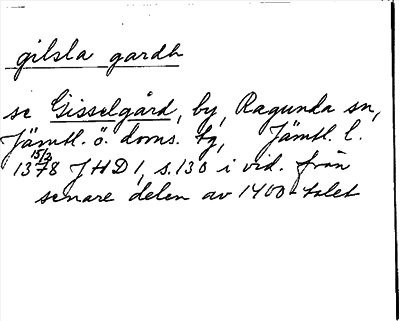 gilsla gardh
se Gisselgård, by, Ragunda sn,
Jämtl. ö. doms. tg, Jämtl. l.
15/3
1378 JHD 1, s. 130 i vid. från
senare delen av 1400-talet